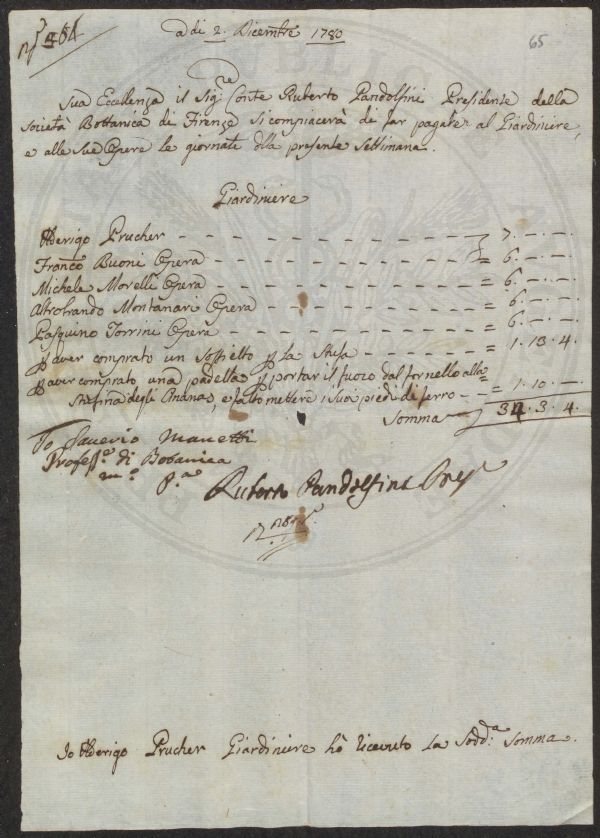 a di 2. Dicembre 1780
65
Sua Eccellenza il Sig.re Conte Ruberto Pandolfini Presidente della
Società Bottanica di Firenze si compiacerà di far pagare al Giardiniere,
e alle sue Opere le giornate della presente Settimana.
Giardiniere
Ulderigo Prucher - - - - - - - - - 7. -. -.
Franco Buoni Opera - - - - - - - - = 6. -. -.
Michele Morelli Opera - - - - - - - = 6. -. -.
Altobrando Montanari Opera - - - - - = 6. -. -.
Pasquino Torrini Opera - - - - - - - = 6. -. -.
p aver comprato un soffietto p la Stufa - - - - - = 1. 13. 4.
p aver comprato una padella p portar il fuoco dal fornello alla
Stufina degli Ananas, e fatto mettere i suoi piedi di ferro - - = 1. 10. -
Somma 34. 3. 4.
Io Saverio Manetti
Profess.e di Botanica
m.o p.a
Ruberto Pandolfini Pres.
Io Ulderigo Prucher Giardiniere hò ricevuto la Sodd.a Somma.